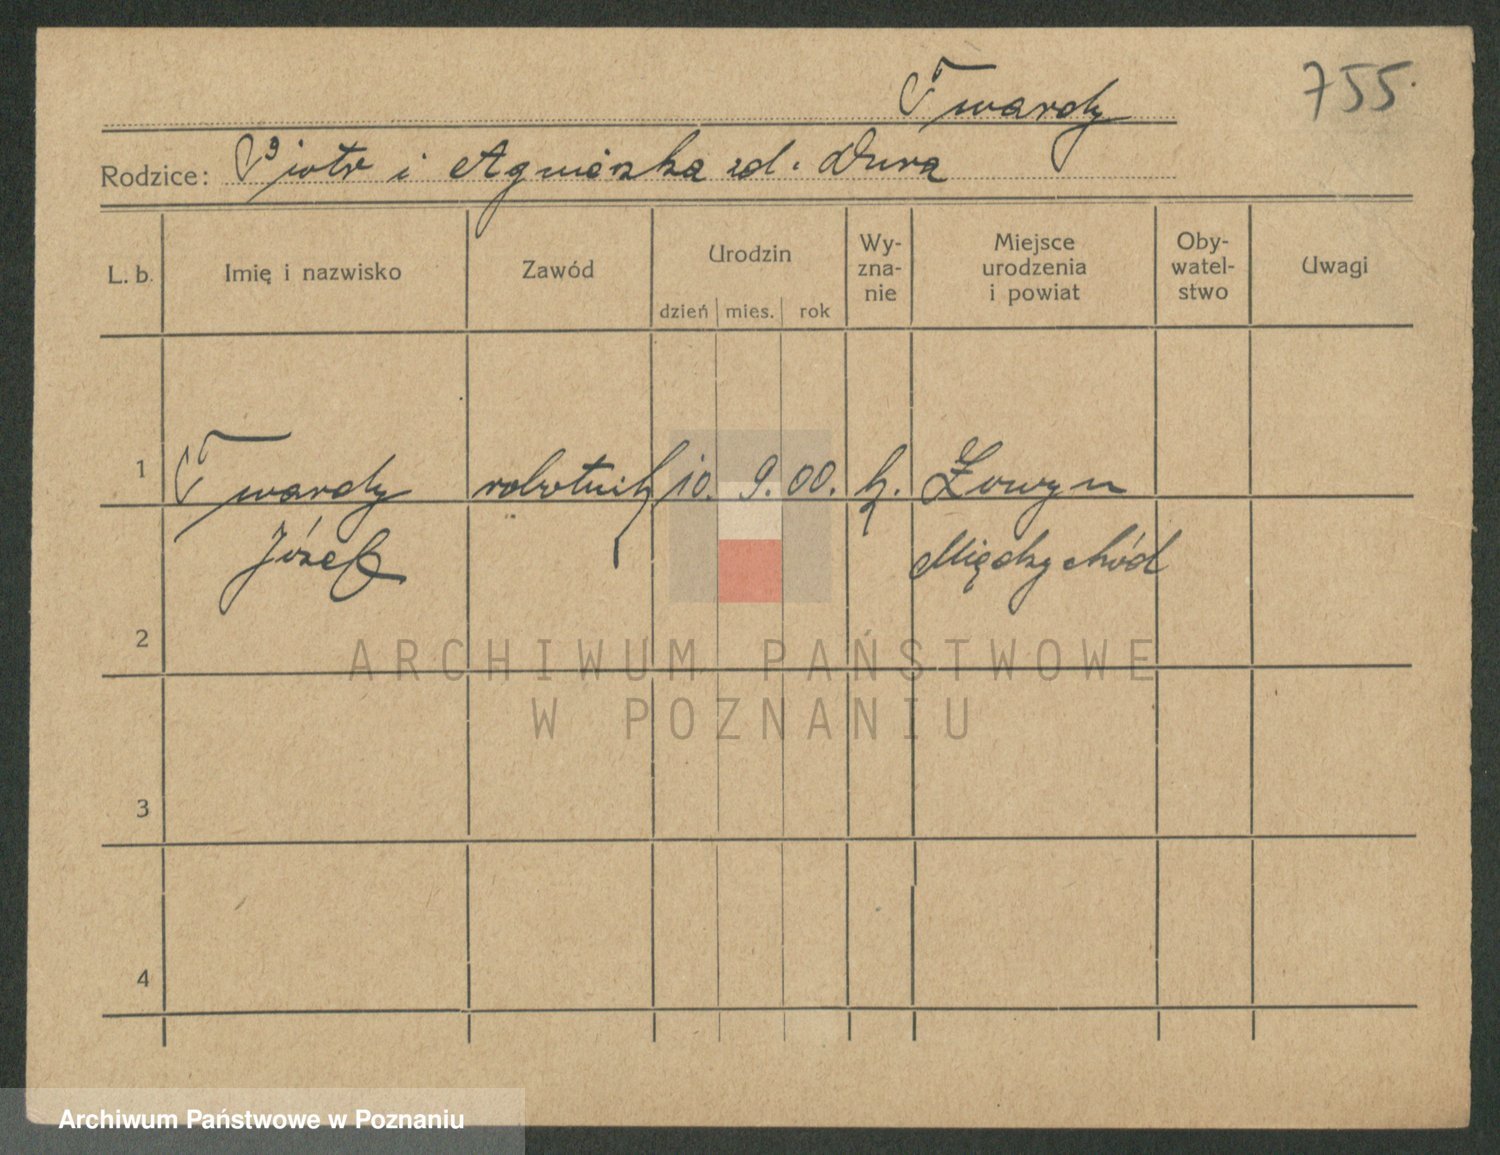 Twardy
755.
Rodzice: Piotr i Agnieszka zd. Dura
L. b. Imię i nazwisko Zawód Urodzin dzień mies. rok Wy-zna-nie Miejsce urodzenia i powiat Oby-watel-stwo Uwagi
1 Twardy robotnik 10. 9. 00. k. Łowyn
Józef Międzychód
2
ARCHIWUM PAŃSTWOWE
W POZNANIU
3
4
Archiwum Państwowe w Poznaniu